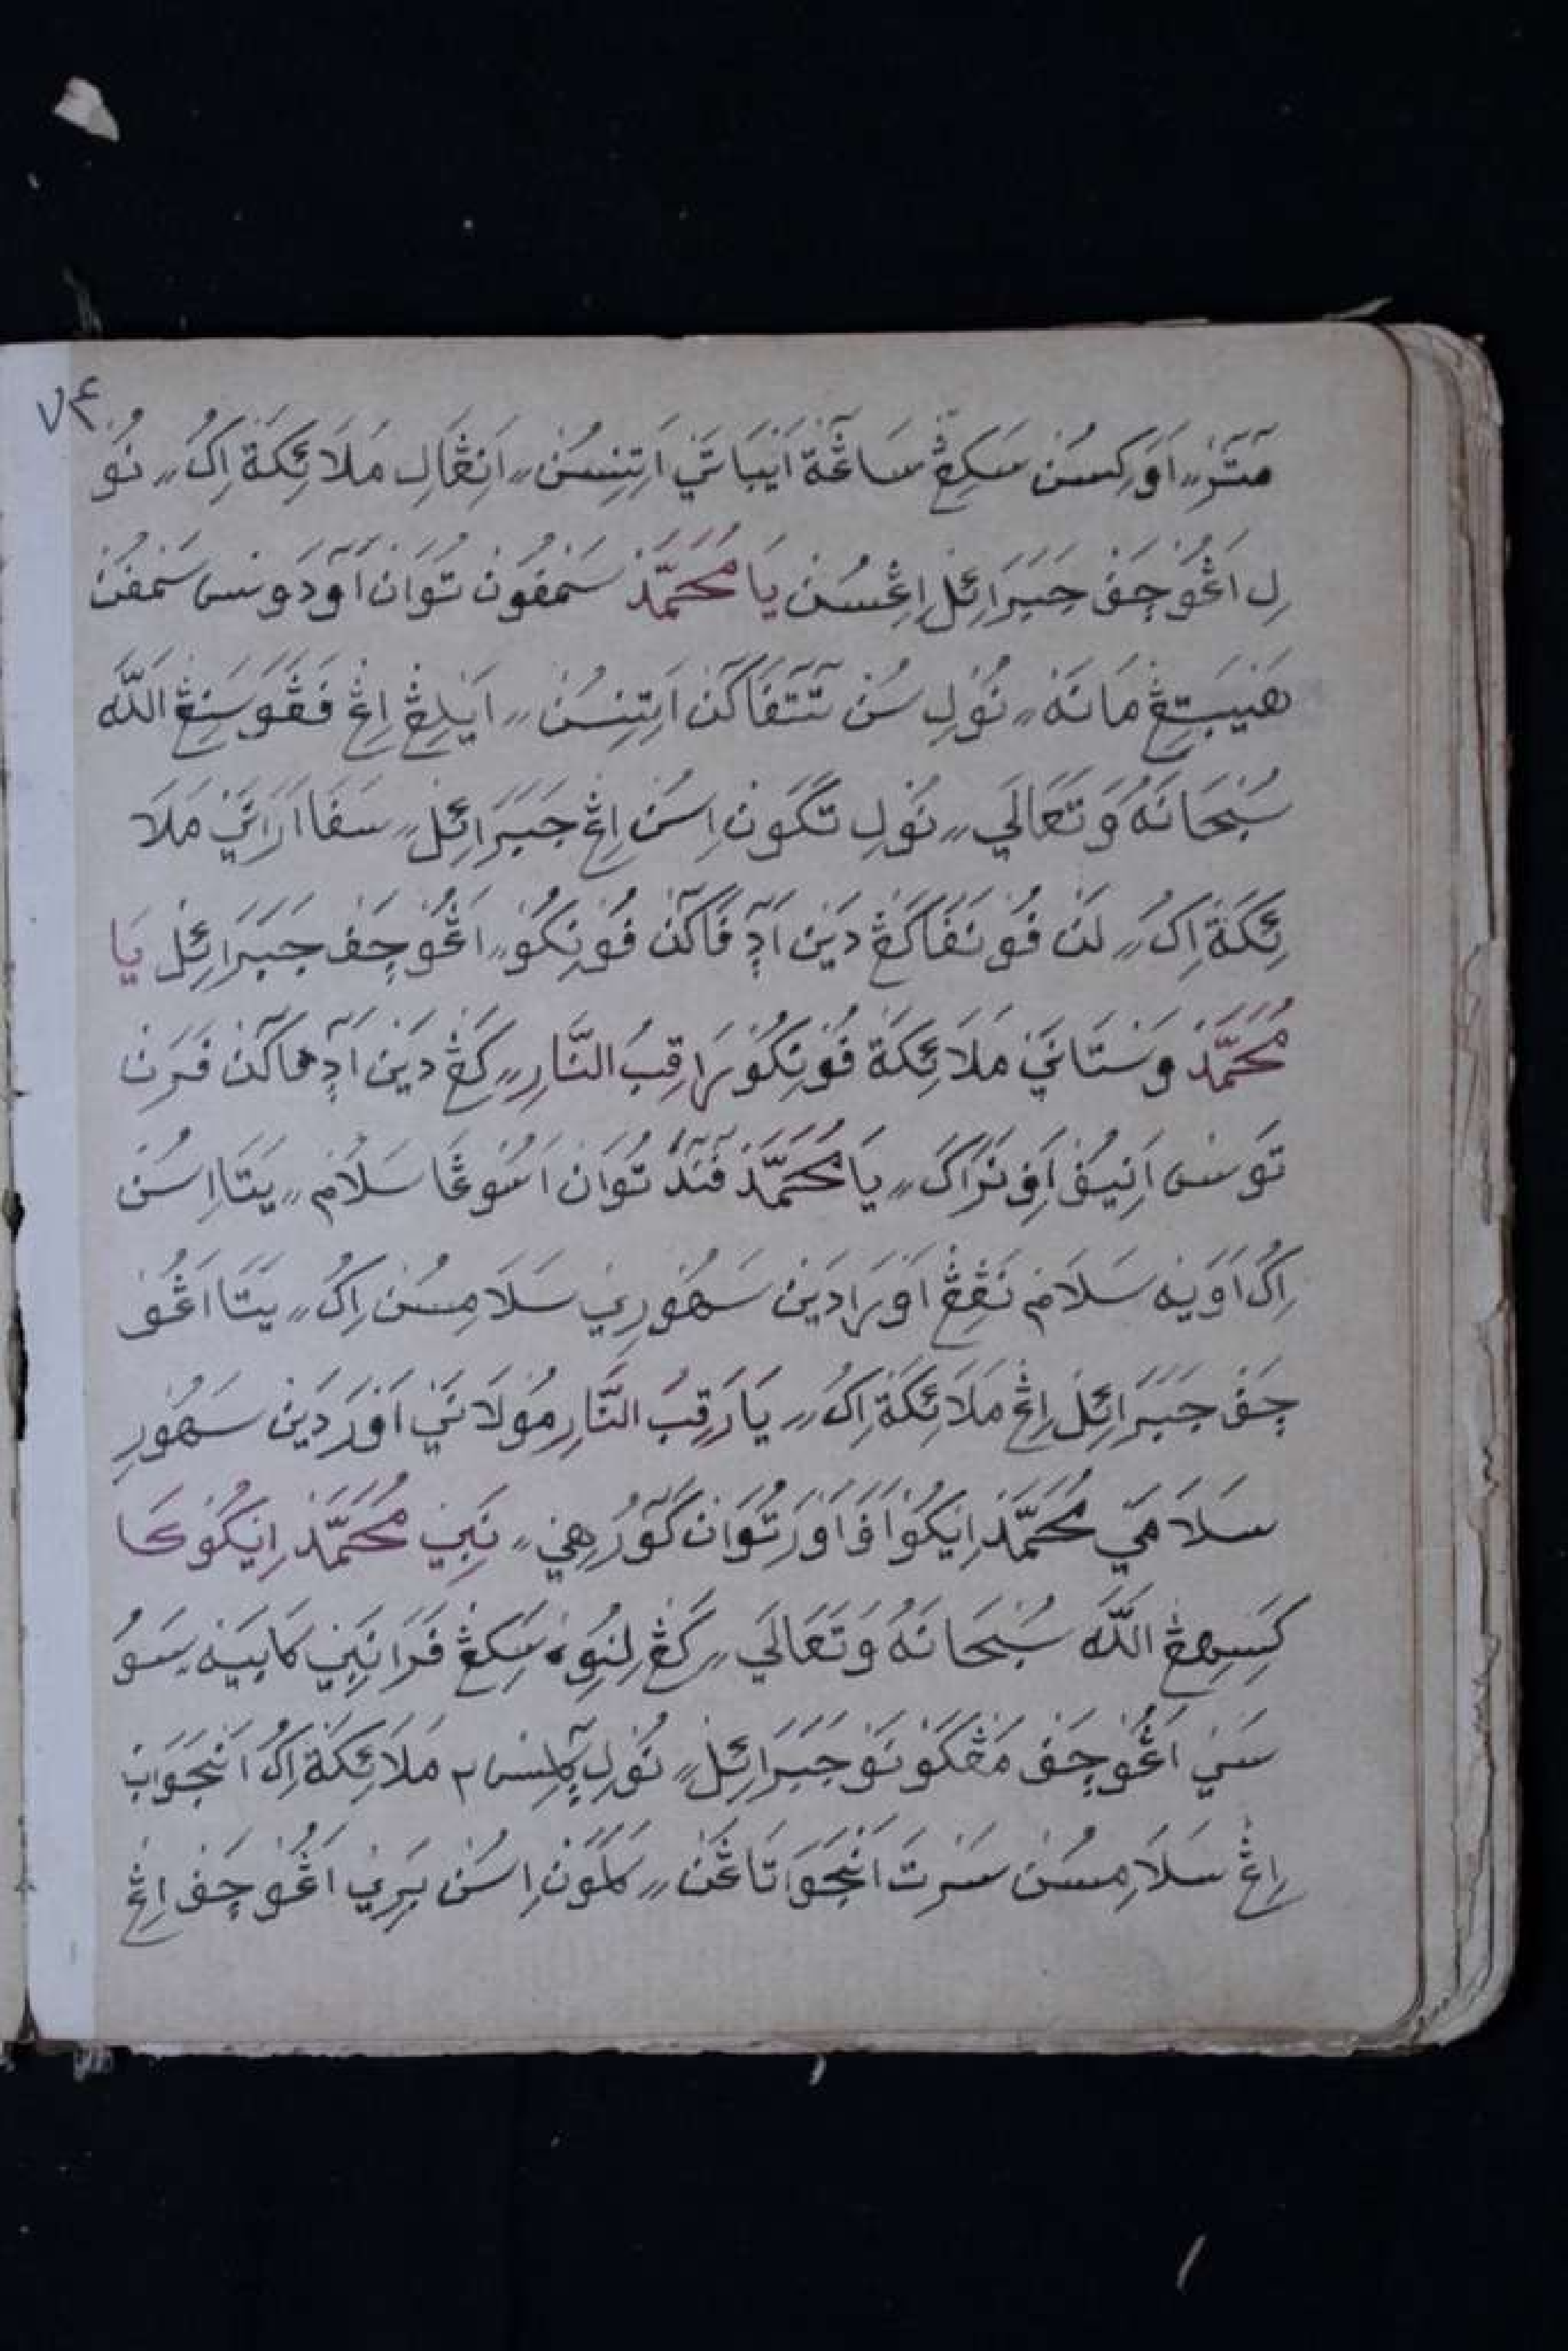 ٧٤
مَتَرَ، اَوَكِسُنْ سَكِڠْ سَاڠَة اَيْبَاتَنَي اَتِنِسُنْ، اَنِڠَالِ مَلَائِكَةْ اِكُ، نُوْ
لِ اَڠُوْچَفْ جَبَرَائِلْ اِڠْسُنْ يَا مُحَمَّدْ سَمْفُونْ تُوَانْ اَوَدَوسى سَمْفُنْ
هَيْبَتِڠْ مَانَهْ، نُوْلِ سُنْ تَتَفَاكَنْ اَتِنِسُنْ، اَيْلِڠْ اِڠْ فَڠَوَسَنِڠْ اللّٰه
سُبْحَانَهُ وَتَعَالَي، نُوْلِ تَكَونْ اِسُنْ اِڠْ جَبَرَائِلْ، سَفَا اَرَانَيْ مَلَا
ئِكَةْ اِكُ، لَنْ فُونَفَا كَڠْ دَيْنْ اَدَفَاكَنْ فُوْنِكُوْ، اَڠُوْچَفْ جَبَرَائِلْ يَا
مُحَمَّدْ وَسْتَانَيْ مَلَائِكَةْ فُوْنِكُوْ رَاقِبُ النَّارِ، كَڠْ دَيْنْ اَدَفَاكَنْ فَرَنْ
تَوسْى اَنِيُفْ اَفِ نَرَاكَ، يَا مُحَمَّدْ فَنَدْ تُوَانْ اَسُوڠَا سَلَامْ، يَتَا اِسُنْ
اِكُ اَوَيْه سَلَامْ نَڠِڠْ اَوْرَا دَيْنْ سَهُوْرِي سَلَامِسُنْ اِكُ، يَتَا اَڠُوْ
چَفْ جَبَرَائِلْ اِڠْ مَلَائِكَةْ اِكُ، يَا رَقِبُ النَّارِ مُوْلَانَيْ اَوْرَ دَيْنْ سَهُوْرِ
سَلَامَيْ مُحَمَّدْ اِيْكُوْ اَفَا اَوْرَ تُوَانْ كَوْرُهِيْ، نَبِيْ مُحَمَّدْ اِيْكُوْ كَا
كَسِهِڠْ اللّٰه سُبْحَانَهُ وَتَعَالَي، كَڠْ لِنُوِهْ سَكِڠْ فَرَا نَبِيْ كَابَيْه سَوُ
سَيْ اَڠُوْچَفْ مَڠْكَوْنَوْ جَبَرَائِلْ، نُوْلِ كَلِسى م مَلَائِكَةْ اِكُ اَنْجَوَابْ
اِڠْ سَلَامِسُنْ سَرْتَ اَنْجَوَاتَاڠَنْ، كَلَوَنْ اِسُنْ بَرِيْ اَڠُوْچَفْ اِڠْ